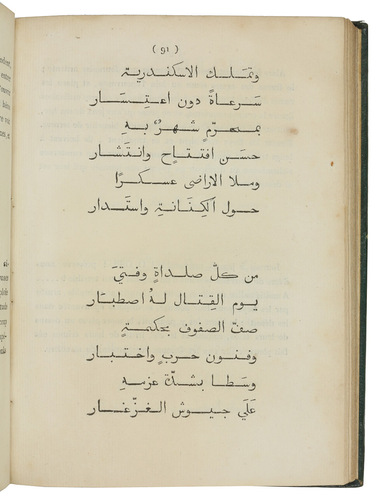 (91)
وتملك الاسكندرية
سرعاةً دون اعتسار
بمحرّمٍ شهرٌ به
حسن افتتاح وانتشار
وملا الاراضى عسكرًا
حول الكنانة واستدار
من كلّ صلداةٍ وفتيَ
يوم القتال لهُ اصطبار
صفّ الصفوف بحكمةٍ
وفنون حربٍ واختبار
وسطا بشدّة عزمه
علَي جيوش الغزّغار